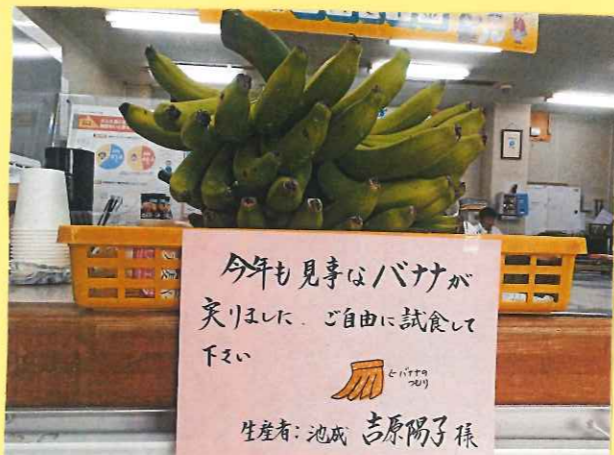 今年も見事なバナナが
実りました. ご自由に試食して
下さい
←バナナの
つもり
生産者:池成 吉原陽子様